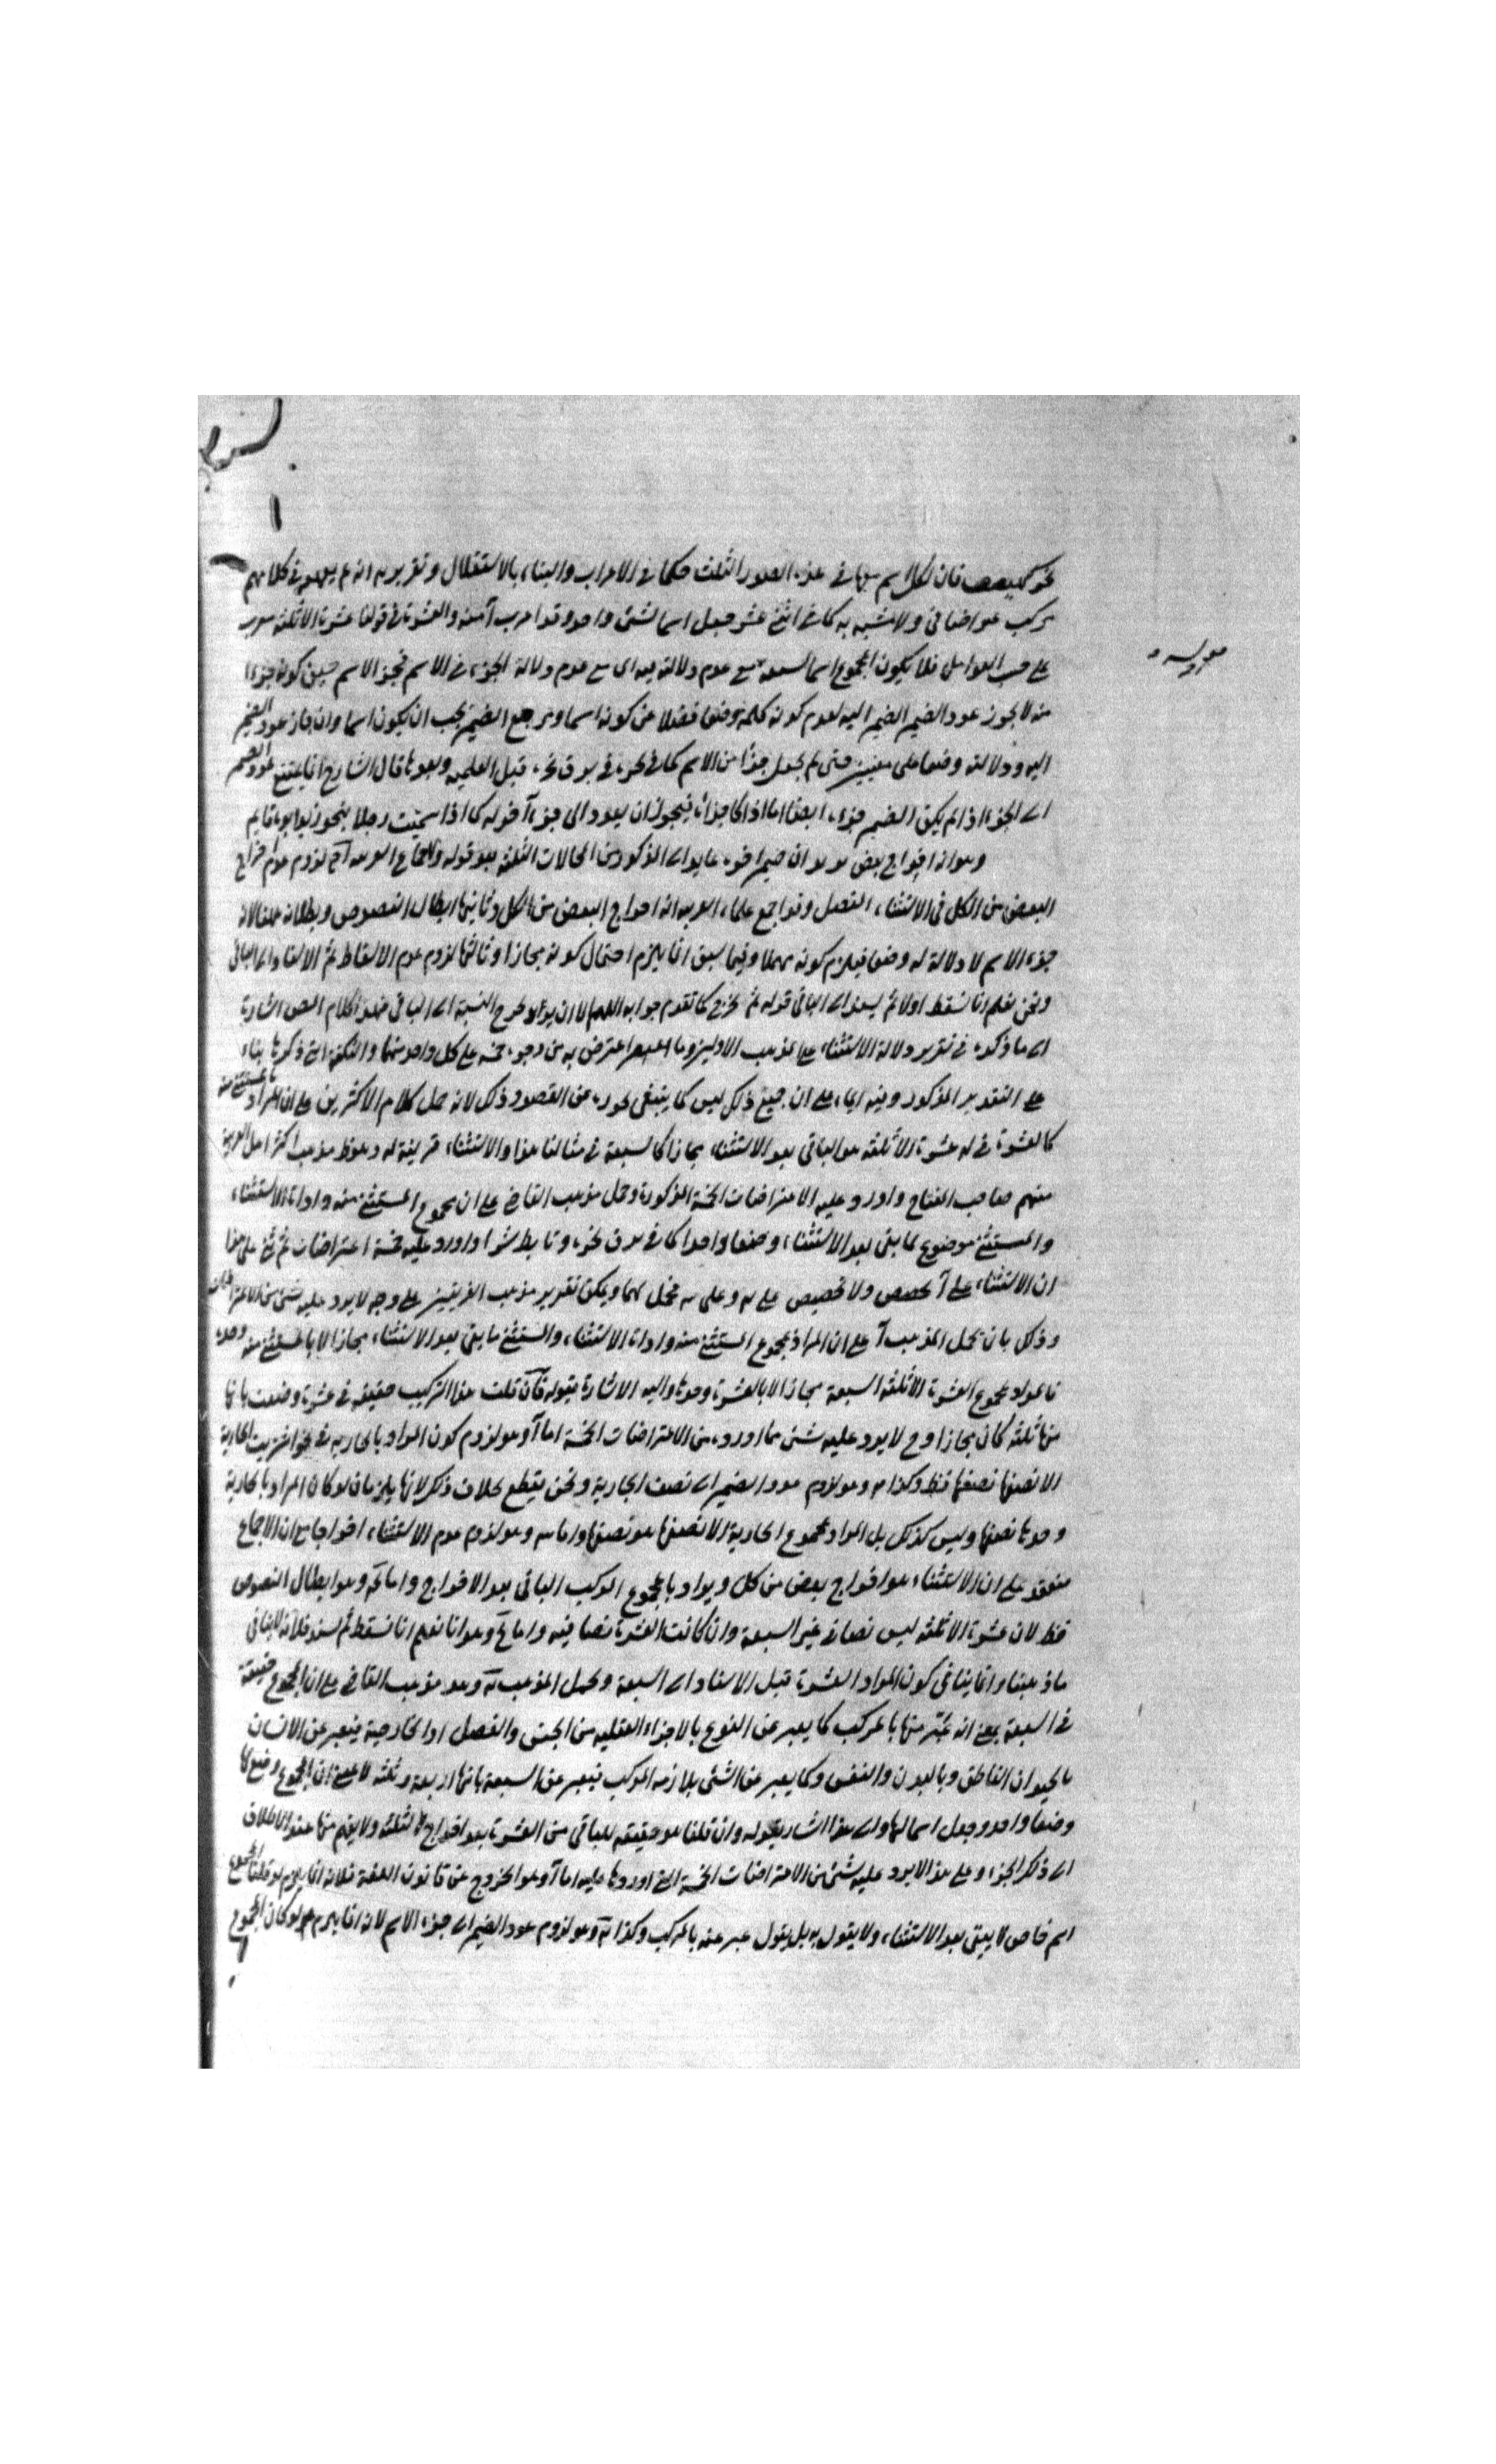 نحو كهيعص فان لكل اسم منها في هذه الصور الثلث حكما في الاعراب والبناء بالاستقلال وتقريره انه لم يعهد في كلامهم
تركيب هو اضافي ولا شبيه به كما في اثني عشر جعل اسما لشئ واحد وقد اعرب آ منه والعشرة في قولنا عشرة الا ثلثة معرب
على حسب العوامل فلا يكون المجموع اسما لسبعة مع عدم دلالته فيه اى مع عدم دلالة الجزء في الاسم فجزء الاسم حين كونه جزءا
منه لا يجوز عود الضمير الضمير اليه لعدم كونه كلمة وضعا فضلا عن كونه اسما ومرجع الضمير يجب ان يكون اسما وان جاز عود الضمير
اليه ودلالته وضعا على معنيين متى لم يجعل جزأ من الاسم كما في نحره في برق نحره قبل العلمية وبعدها قال الشارح انما يمتنع عود الضمير
الى الجزء اذا لم يكن الضمير جزءه ايضا اما اذا كان جزأه فيجوز ان يعود الى جزء آخر له كما اذا سميت رجلا بنحو زيد ابوه قائم
وهو انه اخراج بعض ان ضمير اخره عايد الى المذكور من المحالات الثلثة بعد قوله ولاجماع العربية آه لزوم عدم اخراج
البعض من الكل في الاستثناء المتصل وقد اجمع علماء العربية انه اخراج البعض من الكل وثانيها ابطال النصوص وبطلانه هنا لانه
جزء الاسم لا دلالة له وضعا فيلزم كونه مهملا وفيما سبق انما يلزم احتمال كونه مجازا وثالثها لزوم عدم الاسقاط ثم الاسناد الى الباقي
ونحن نعلم انا نسقط اولا ثم يسند الى الباقي قوله ثم يخرج كما تقدم جوابه اللهم الا ان النسبة الى الباقي هذا الكلام المص اشارة
الى ما ذكره في تقرير دلالة الاستثناء على المذهب الاولين وما اعترض به من وجوه خمسة على كل واحد منهما والنكتة التي ذكرها بناء
على التقدير المذكور وفيه ايماء على ان جميع ذلك ليس كما ينبغى لبعده عن المقصود وذلك لانه حمل كلام الاكثرين على ان المراد بالمستثنى منه
كالعشرة في له عشرة الا ثلثة هو الباقي بعد الاستثناء مجازا كالسبعة في مثالنا هذا والاستثناء قرينة له وهو مذهب اكثر اهل العربية
منهم صاحب المفتاح واورد عليه الاعتراضات الخمسة المذكورة وحمل مذهب القاضي على ان مجموع المستثنى منه واداة الاستثناء
والمستثنى موضوع لما بقى بعد الاستثناء وضعا واحدا كما في برق نحره وتابط شرا واورد عليه خمسة اعتراضات ثم بنى على هذا
ان الاستثناء على آ تخصيص ولا تخصيص على وعلى محتمل لهما ويمكن تقرير مذهب الفريقين على وجه لا يرد عليه شئ من الاعتراضات
وذلك بان يحمل المذهب آ على ان المراد بمجموع المستثنى منه واداة الاستثناء والمستثنى ما بقى بعد الاستثناء مجازا لا بالمستثنى منه وحده
فالمراد بمجموع العشرة الا ثلثة السبعة مجازا لا بالعشرة وحدها واليه الاشارة بقوله فان قلت هذا التركيب حقيقة في عشرة وصفت بانها
منها ثلثة كان مجازا وح لا يرد عليه شئ مما اورده من الاعتراضات الخمسة اما آ وهو لزوم كون المراد بالجارية في نحو اشتريت الجارية
الا نصفها نصفها فقط وكذا وهو لزوم عود الضمير الى نصف الجارية ونحن نقطع بخلاف ذلك لانها يلزمان لو كان المراد بالجارية
وحدها نصفها وليس كذلك بل المراد بمجموع الجارية الا نصفها هو نصفها واما وهو لزوم عدم الاستثناء اخراجا مع ان الاجماع
منعقد على ان الاستثناء هو اخراج بعض من كل ويراد بالمجموع المركب الباقي بعد الاخراج واما وهو ابطال النصوص
فظ لان عشرة الا ثلثة ليس نصا في غير السبعة وان كانت العشرة نصا فيه واما وهو انا نعلم انا نسقط ثم نسند فلانه لا ينافي
ما ذهبنا وانما ينافي كون المراد العشرة قبل الاسناد الى السبعة ويحمل المذهب وهو مذهب القاضي على ان المجموع حقيقة
في السبعة بمعنى انه عبر منها بالمركب كما يعبر عن النوع بالاجزاء العقلية من الجنس والفصل او الخارجية فيعبر عن الانسان
بالحيوان الناطق وبالبدن والنفس وكما يعبر عن الشئ بلازمه المركب فيعبر عن السبعة بانها اربعة وثلثة لا بمعنى ان المجموع وضع لها
وضعا واحد وجعل اسما لها والى هذا اشار بقوله وان قلنا هو حقيقة للباقي من العشرة بعد اخراج الثلثة ولا يفهم منها عند الاطلاق
الى ذلك الجزء وعلى هذا لا يرد عليه شئ من الاعتراضات الخمسة التي اوردها عليه اما آ وهو الخروج عن قانون اللغة فلانه انما يلزم لو قلنا المجموع
اسم خاص لا يبقى بعد الاستثناء ولا يقول به بل يقول عبر عنه بالمركب وكذا وهو لزوم عود الضمير الى جزء الاسم لانه انما يلزم لو كان المجموع